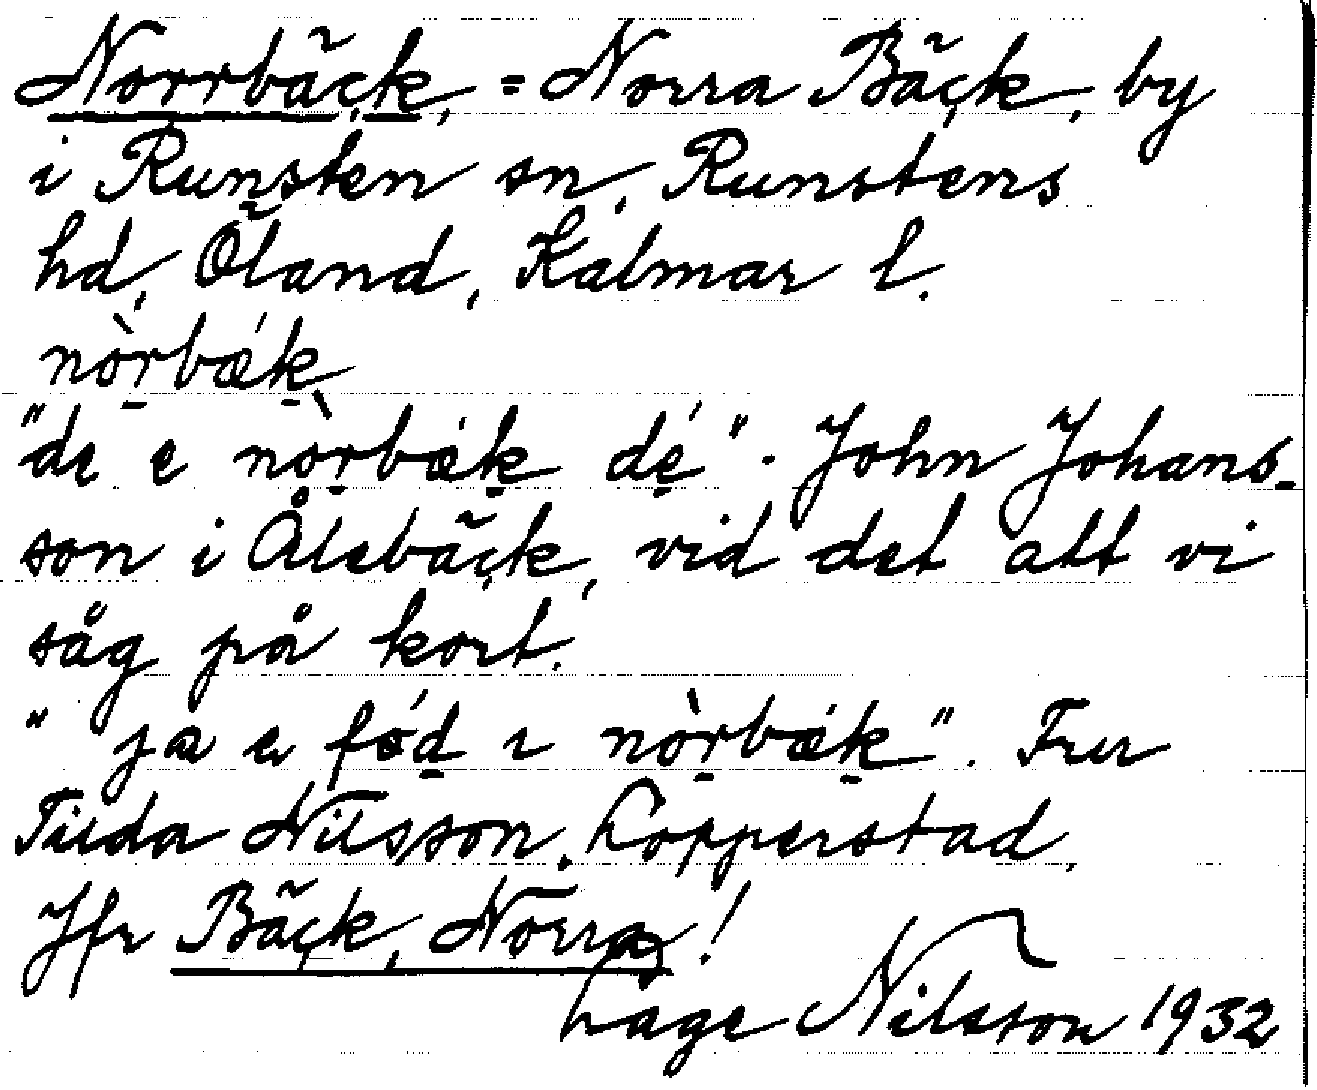 Norrbäck, = Norra Bäck, by
i Runsten sn, Runstens
hd, Öland, Kalmar l.
nòrbǽk
"de e nòrbǽk dé". John Johans-
son i Ålebäck, vid det att vi
såg på kort.
"ja e fǿd ı nòrbǽk". Fru
Tilda Nilsson, Lopperstad,
Jfr Bäck, Norra!
Lage Nilsson 1932